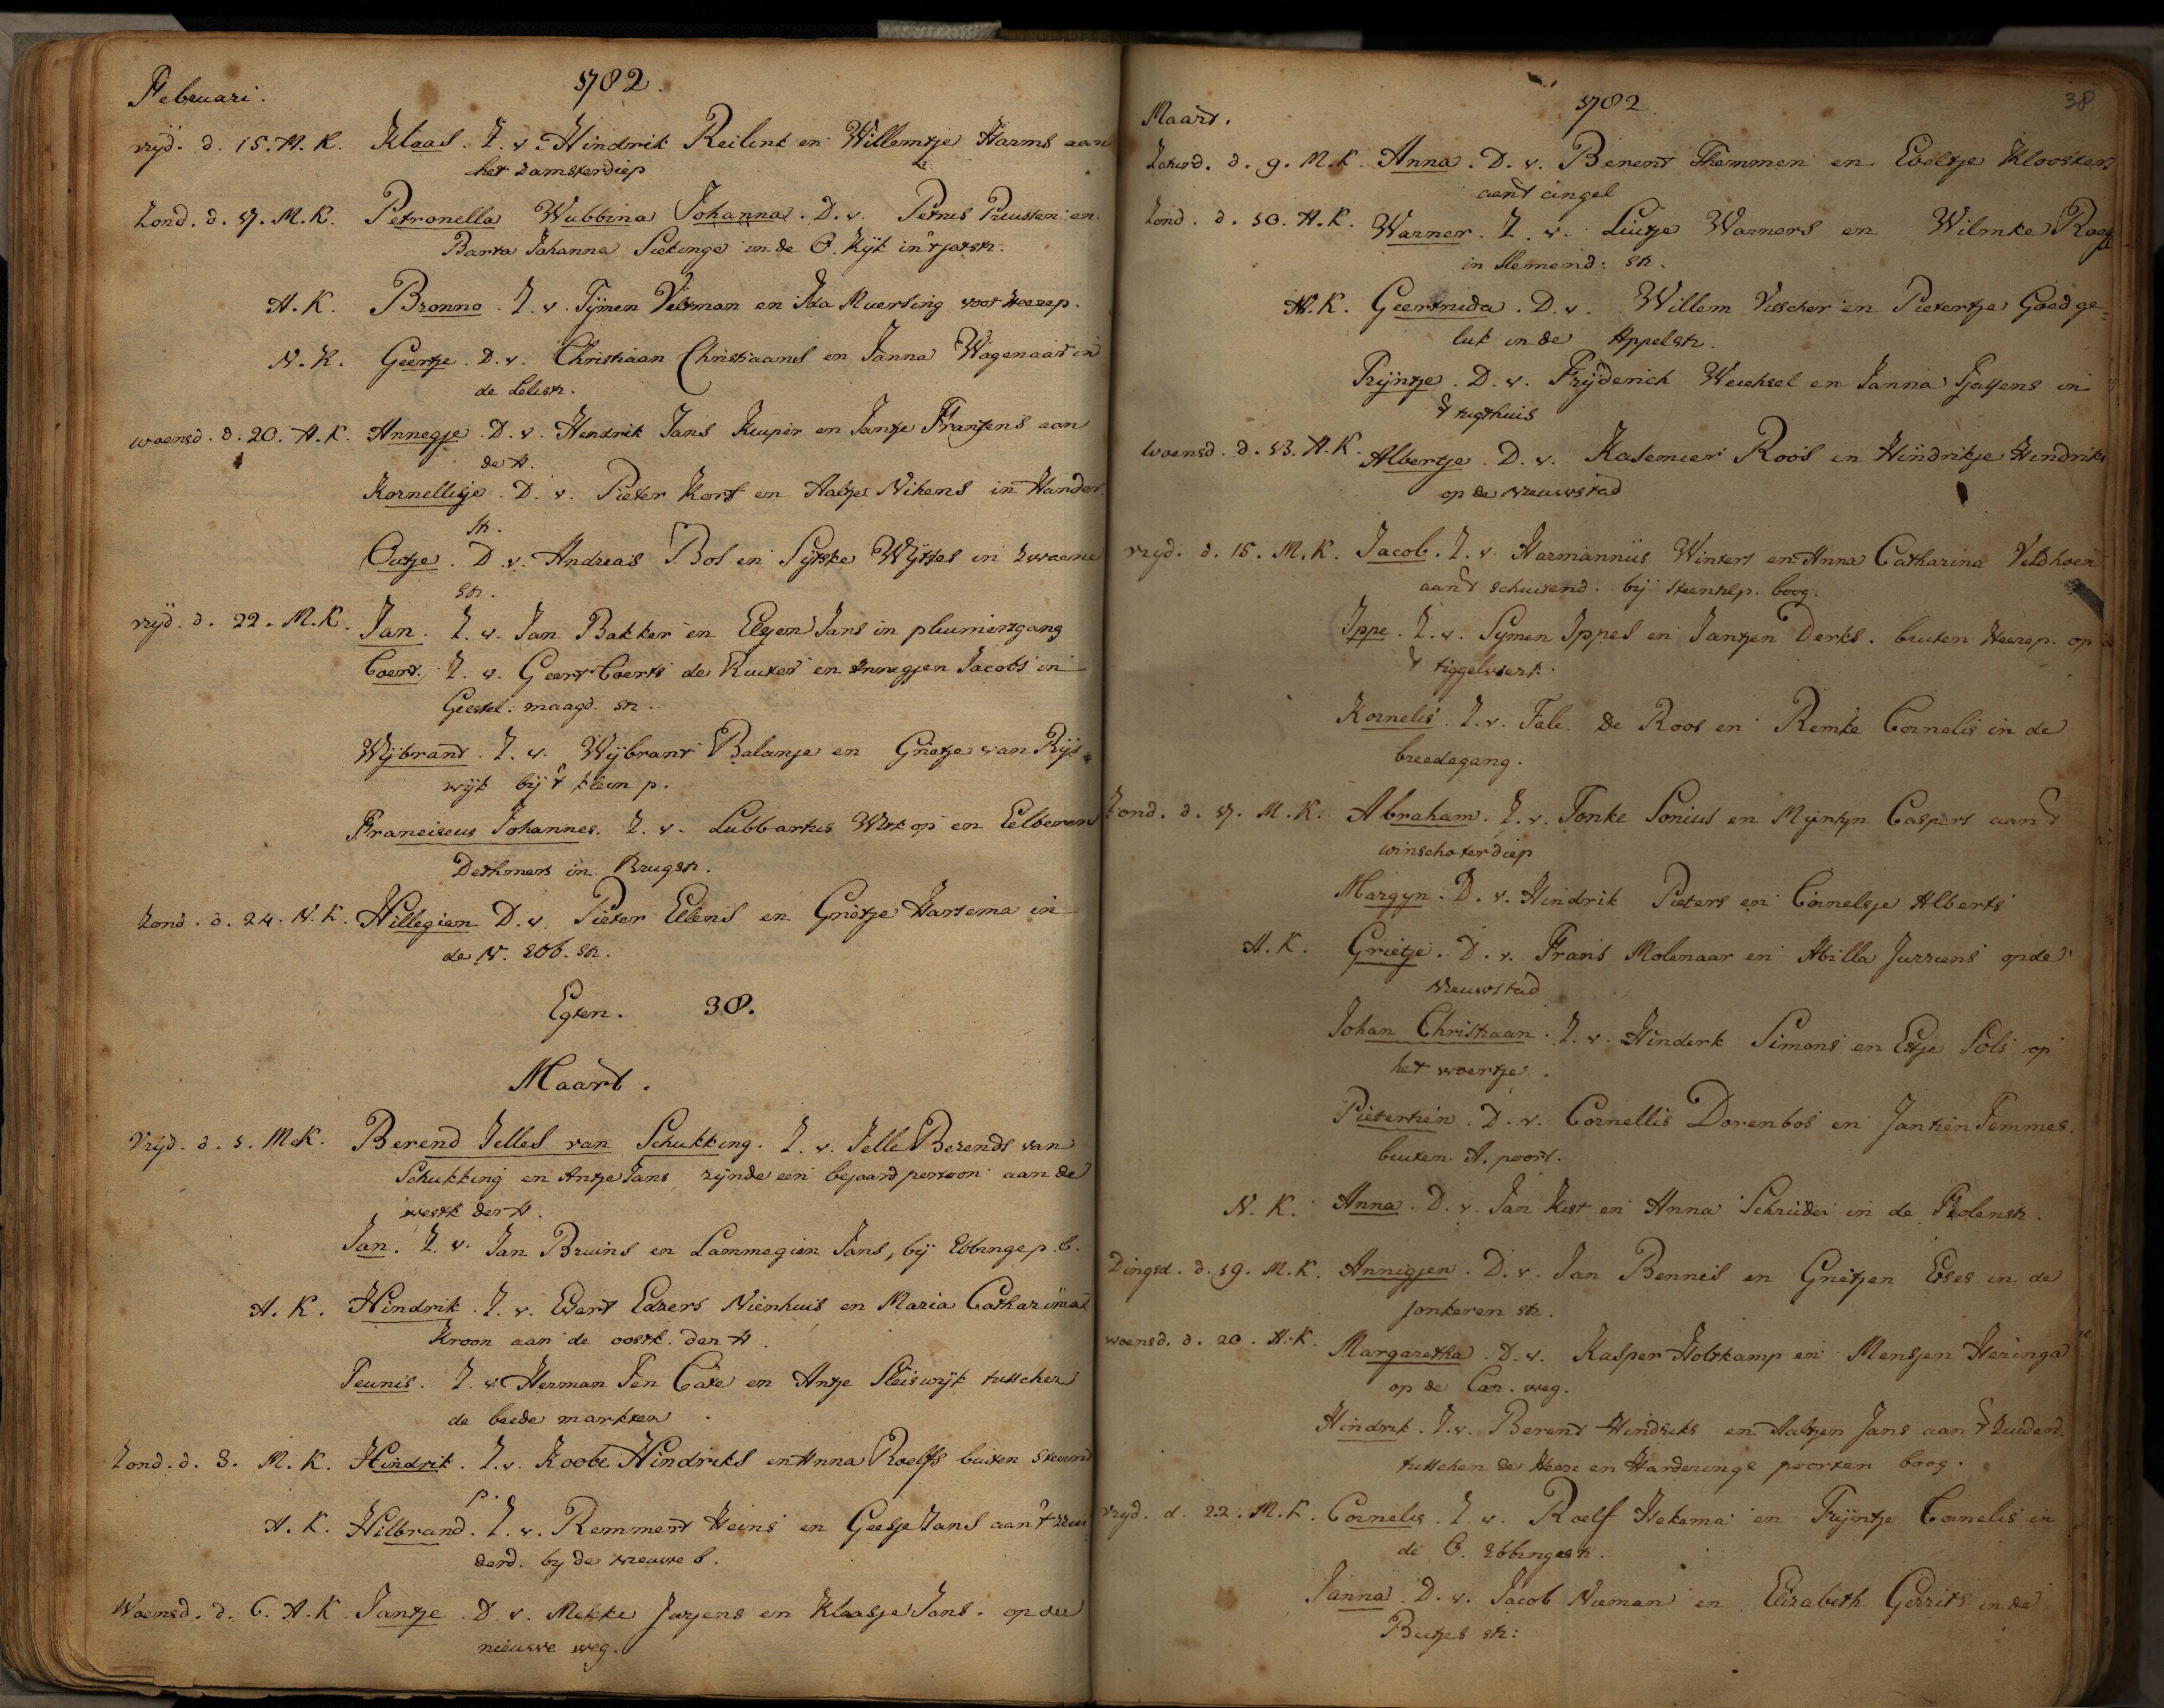 Februari. 1782.
vrijd. d. 15. M. K. Klaas. Z. v. Hindrik Reilink en Willemtje Harms aan
het damsterdiep
Zond. d. 17. M. K. Petronella Wubbina Johanna. D. v. Petrus Pruissen en
Barta Johanna Siekinge in de O. Kijk in 't jatstr.
A. K. Bronno. Z. v. Tijmen Veltman en Ida Muerling voor Heerep.
N. K. Geertje. D. v. Christiaan Christiaans en Janna Wagenaar in
de Lelistr.
woensd. d. 20. A. K. Annegje. D. v. Hendrik Jans Kuiper en Jantje Franssens aan
de A.
Kornelligje. D. v. Pieter Kort en Aaltje Nikens in Hander
str.
Outje. D. v. Andreas Bos en Sijtske Wijtses in Zwaane
str.
vrijd. d. 22. M. K. Jan. Z. v. Jan Bakker en Elsjen Jans in pluimertgang
Coert. Z. v. Geert Coerts de Ruiter en Annegjen Jacobs in
Geestel: maagd. str.
Wijbrand. Z. v. Wijbrant Balanje en Grietje van Rijs
wijk bij 't klein p.
Franciscus Johannes. Z. v. Lubbartus Wirtjop en Eelberen
Dethmers in Brugstr.
Zond. d. 24. N. K. Hillegien D. v. Pieter Ellens en Grietje Hartema in
de N. Ebb. str.
Egten. 38.
Maart.
Vrijd. d. 1. M. K. Berend Jelles van Schukking. Z. v. Jelle Berends van
Schukking en Antje Jans, zijnde een bejaard persoon aan de
westk der A.
Jan. Z. v. Jan Bruins en Lammegien Jans, bij Ebbingep. b.
A. K. Hindrik. Z. v. Evert Edzers Nienhuis en Maria Catharina
Kroon aan de oostk. der A.
Teunis. Z. v. Herman Ten Cate en Antje Sleiswijk tusschen
de beede markten
Zond. d. 3. M. K. Hindrik. Z. v. Koobe Hindriks en Anna Roelfs buiten Steend
p.
A. K. Hilbrand. Z. v. Remmert Heins en Geesje Jans aan 't zui
derd. bij de nieuwe b.
Woensd. d. 6. A. K. Jantje. D. v. Mekke Jurjens en Klaasje Jans. op de
nieuwe weg.
Maart. 1782. 38
Zaturd. d. 9. M. K. Anna. D. v. Berent Themmen en Eveltje Klooster
aan 't cingel
Zond. d. 10. A. K. Warner. Z. v. Luitje Warners en Wilmke
in Hemend: str.
A. K. Geertruida. D. v. Willem Visscher en Pietertje Goedge=
luk in de Appelstr.
Trijntje. D. v. Frijderich Weichsel en Janna Tjassens in
't tugthuis
woensd. d. 13. A. K. Albertje. D. v. Kasemier Roos en Hindrikje Hendriks
op de nieuwstad
vrijd. d. 15. M. K. Jacob. Z. v. Harmannus Winters en Anna Catharina Veldhoen
aan 't schuitend. bij steentilp. boog.
Ippe. Z. v. Sijmen Ippes en Jantjen Derks. buiten Heerep. op
't tiggelwerk.
Kornelis. Z. v. Fale de Roos en Remke Cornelis in de
breedegang.
Zond. d. 17. M. K. Abraham. Z. v. Tonke Sonius en Mijntjn Caspers aan 't
winschoterdiep
Margyn. D. v. Hindrik Pieters en Cornelsje Alberts
A. K. Grietje. D. v. Frans Molenaar en Abilla Jurriens op de
nieuwstad
Johan Christiaan. Z. v. Hinderk Simons en Etje Sols op
het woertje.
Pietertien. D. v. Cornellis Dorenbos en Jantien Temmes.
buiten A. poort.
N. K. Anna. D. v. Jan Kist en Anna Schrijder in de Folenstr.
Dingsd. d. 19. M. K. Annigjen. D. v. Jan Bennes en Grietjen Eses in de
Jonkeren str.
woensd. d. 20. A. K. Margaretha. D. v. Kasper Holtkamp en Mensjen Heringa
op de Car. weg.
Hindrik. Z. v. Berent Hindriks en Aaltjen Jans aan 't Zuiderd.
tusschen de Heere en Harderinge poorten boog.
vrijd. d. 22. M. K. Cornelis. Z. v. Roelf Hekema en Trijntje Cornelis in
de O. Ebbingestr.
Janna. D. v. Jacob Nieman en Elizabeth Gerrits in de
Butjes str: